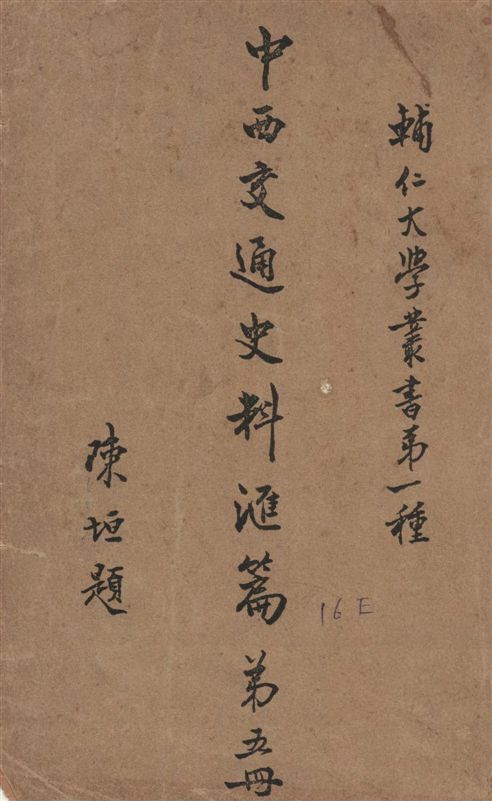 輔仁大學叢書第一種
中西交通史料滙篇 第五冊
陳垣題
16 E